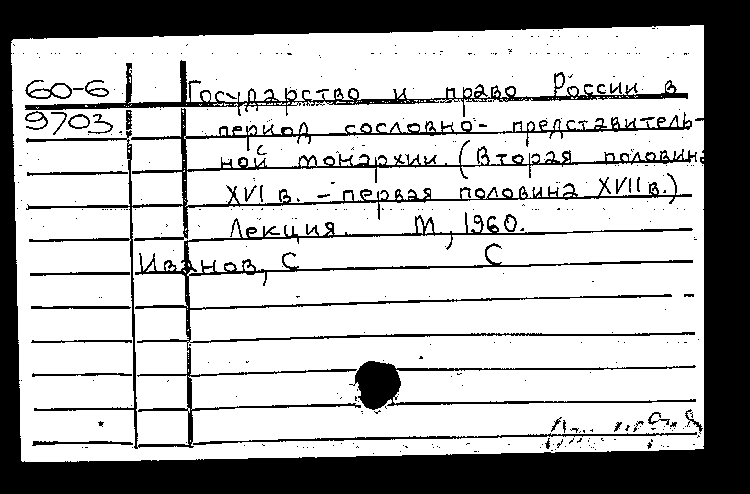 60-6 Государство и право России в
9703. период сословно-представитель-
ной монархии. (Вторая половина
XVI в. – первая половина XVII в.)
Лекция. М., 1960.
Иванов, С С